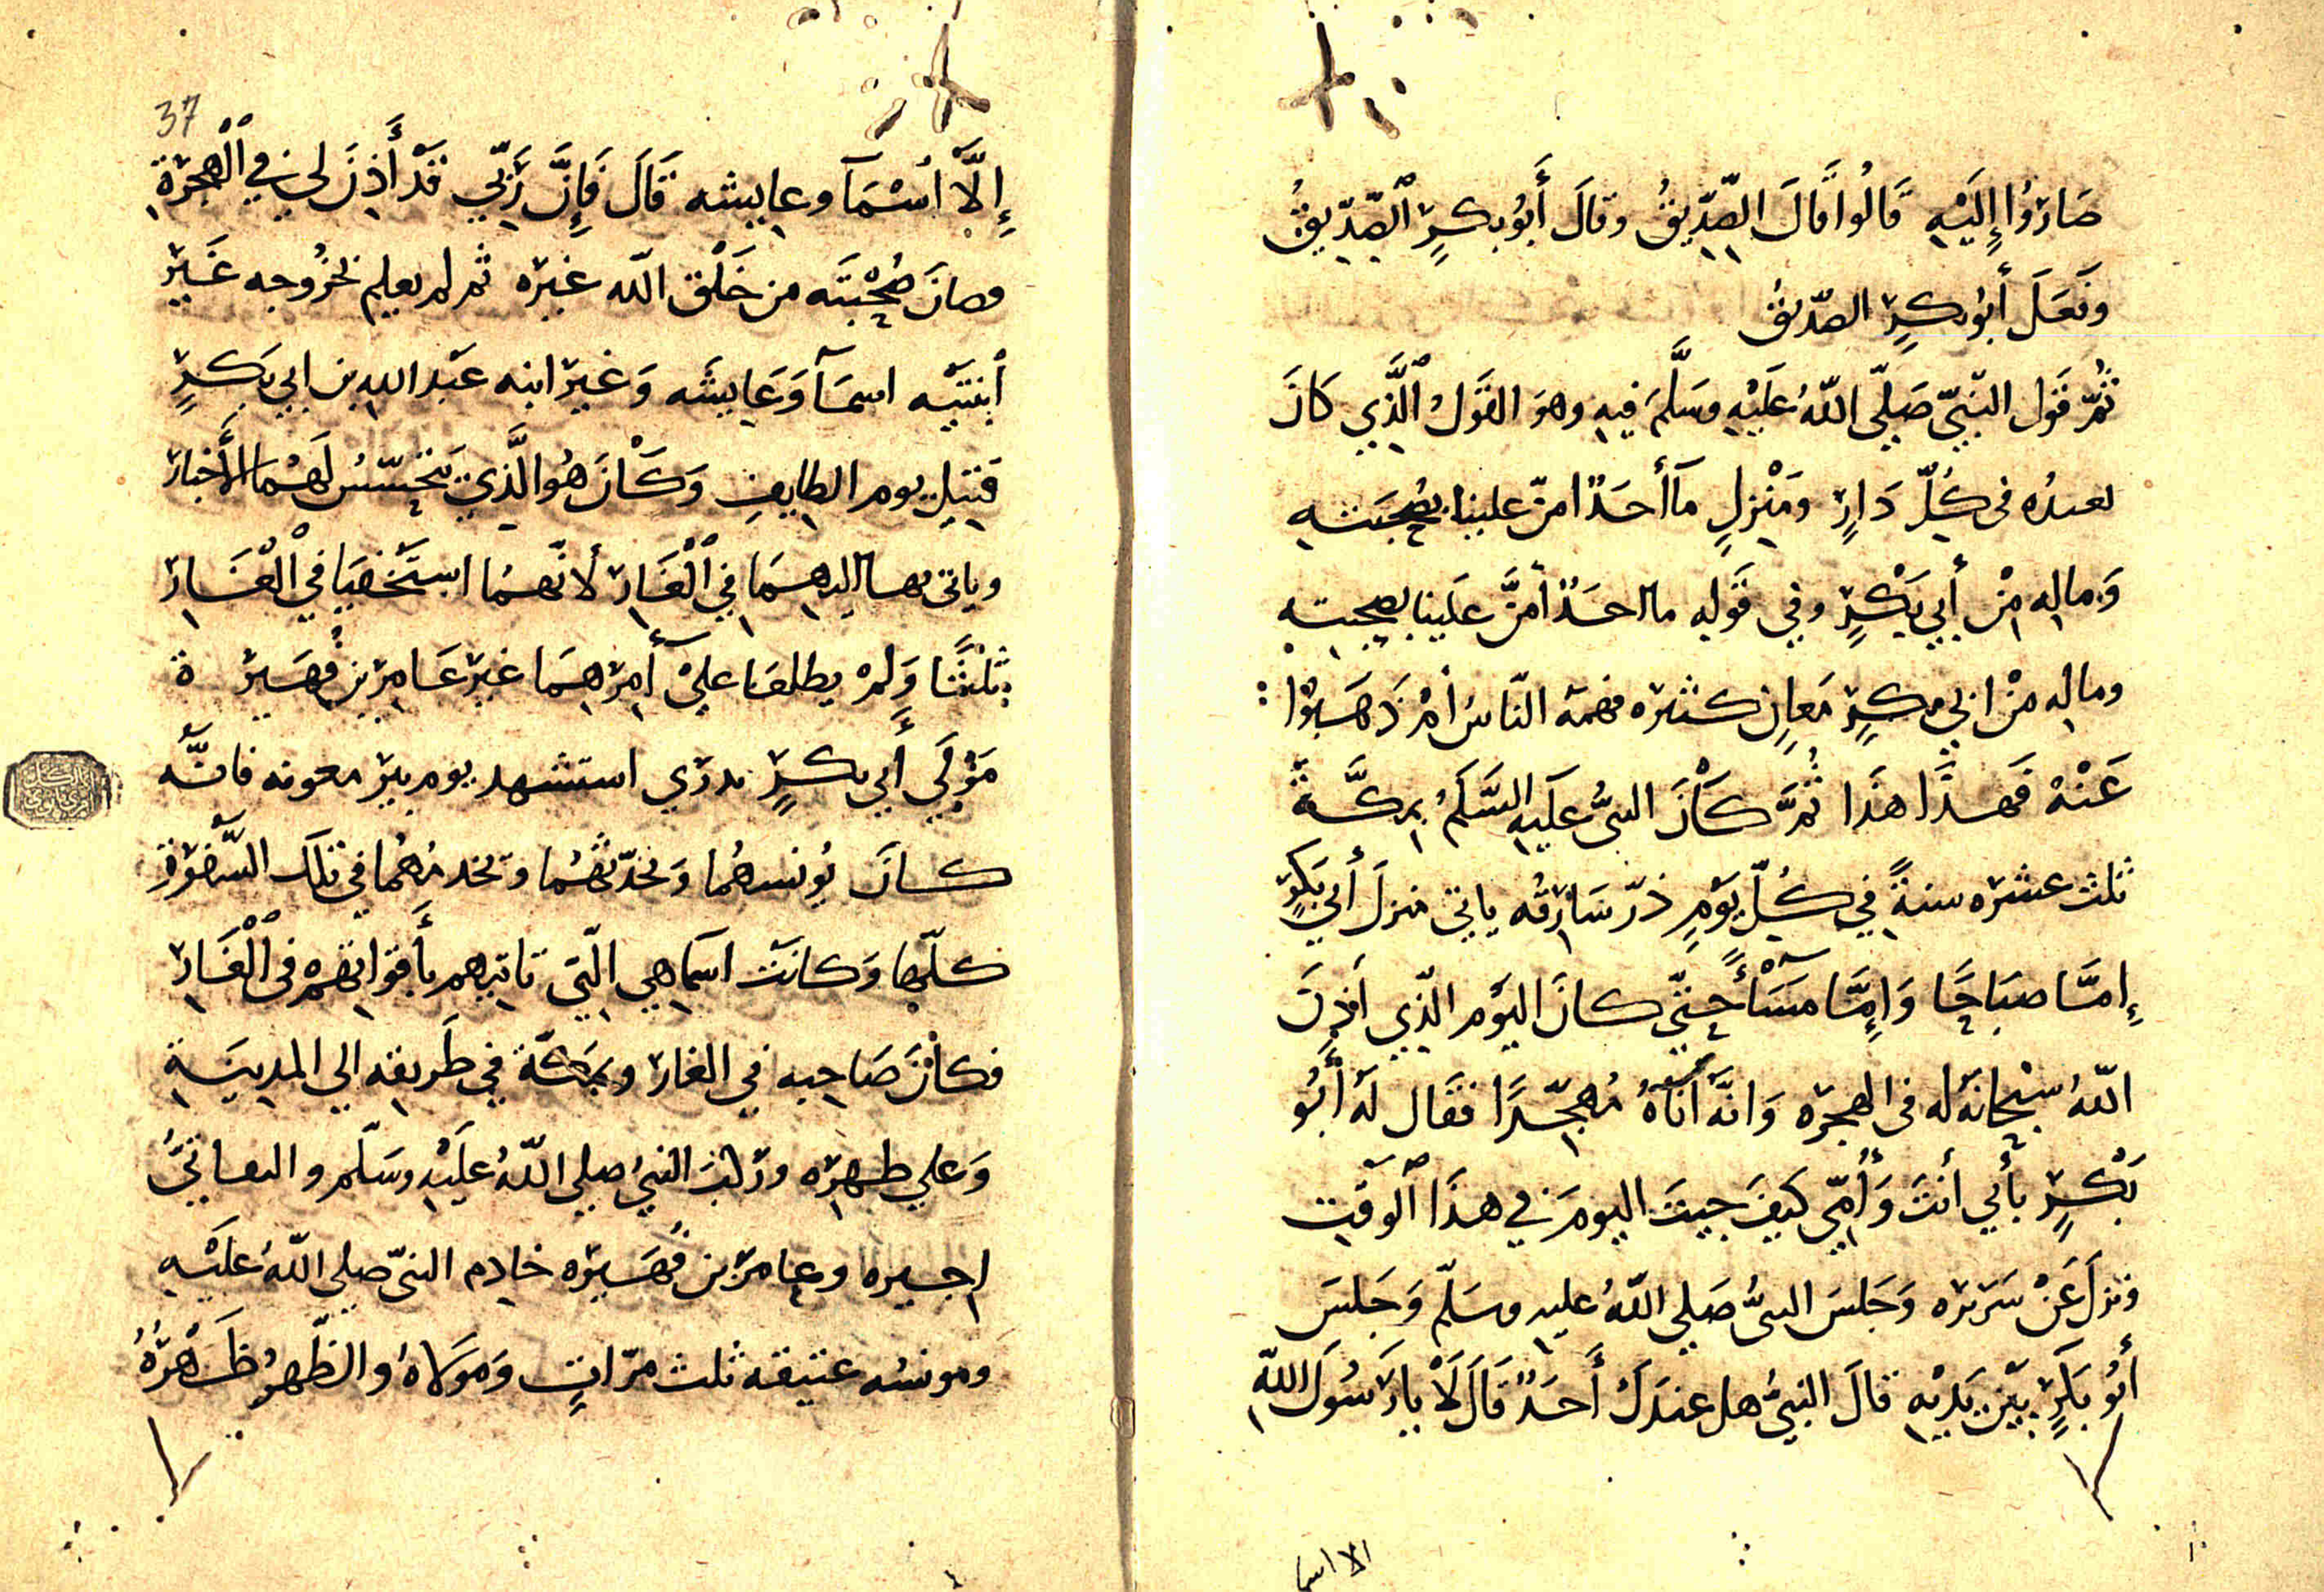 صَارُوا إِلَيْهِ قَالُوا قَالَ الصِّدِّيقُ وقالَ أَبُو بكرٍ الصِّدِّيقُ
وفَعَلَ أبُو بكرٍ الصّدّيقُ
ثُمّ قَول النّبيّ صَلّي اللّهُ عَلَيْهِ وسَلَّمَ فيهِ وهوَ القَولُ الَّذِي كَانَ
يعيدُه في كُلّ دَارٍ ومَنْزِلٍ مَآ أَحَدٌ امنّ علينا بصُحبَتهِ
وَمالِهِ مِنْ أَبي بَكْرٍ وفي قَولِه ما احَدٌ أَمَنَّ عَلَينا بصحبته
ومالِه منْ ابي بكرٍ مَعانٍ كثيره فهمهَ النّاس أمْ ذَهَبُوا
عَنْهُ فَهذَا هذَا ثُمَّ كَانَ النبيُّ عَلَيهِ السَّلَمُ بمكَّةَ
ثلث عشره سنةً في كُلّ يَوْمٍ ذرّ شَارِقُه ياتي منزلَ أبي بَكرٍ
إِمَّا صبَاحًا وَإِمَّا مَسَآءً حتّي كانَ اليَوْم الّذِي أَذِنَ
اللّهُ سبحَانهُ له في الهجرَه وَانّه أتَاهُ مُهجّرًا فقَال لَه أَبُو
بَكْرٍ بأَبي أنتَ وَأُمّي كَيفَ جيتَ اليومَ في هذَا الوقتِ
ونزلَ عَنْ سَرَيرِه وَجَلسَ النبيُّ صَلي اللّهُ عليهِ وسَلّم وَجَلسَ
أَبُو بَكرٍ بَيْن يَدَيْهِ قالَ النبيُّ هل عندَكَ أَحَدٌ قَالَ لَا يا رَسُولَ اللّهِ
الا اسما
37
إِلَّا اسْمَآ وعايشه قَالَ فَإِنَّ رَبّي قَدْ أَذِنَ لي في الْهِجْرَةِ
وصانَ صُحْبَتَه من خَلْق اللّه غيره ثم لم يعلم بخرُوجه غَيرَ
ابنَتَيْه اسمَآ وَعَايشَه وَغيرَ ابنه عَبد اللهِ بن ابي بَكرٍ
قتيل يوم الطايِفِ وَكَانَ هُو الَّذِي يَتحَسّسُ لَهُمَا الأَخبار
وياتي بها اليهمَا فِي الْغَارِ لأنّهمَا استَخْفيَا في الْغَارِ
ثلثًا وَلمْ يطلعَا عليْ أمرِهمَا غيرَ عَامِر بن فُهَيرَة
مَوْلَي أَبي بكرٍ بدرَي استشهد يوم بير معونه فانَّه
كانَ يُونسهُما وَيحَدّثهُمَا ويخدمهُما في تلكَ السَّفرَةِ
كلّها وَكانَت اسمَا هي الّتي تاتيهم بأَقوَاتهم في الْغَارِ
فكانَ صَاحِبه في الغار وبمَكّة في طَرِيقه الي المدِينَةِ
وَعلي ظهرِه ورَكبَ النبيُ صلي اللّهُ عَلَيْهِ وسَلّم والثاني
اجيره وعامرَ بن فُهَيرَه خادِم النبيّ صلي اللّهُ عَلَيْهِ
ومونسُه عَتيقه ثلث مرّاتٍ وَمَولَاهُ والظّهرُ ظَهْرُهُ